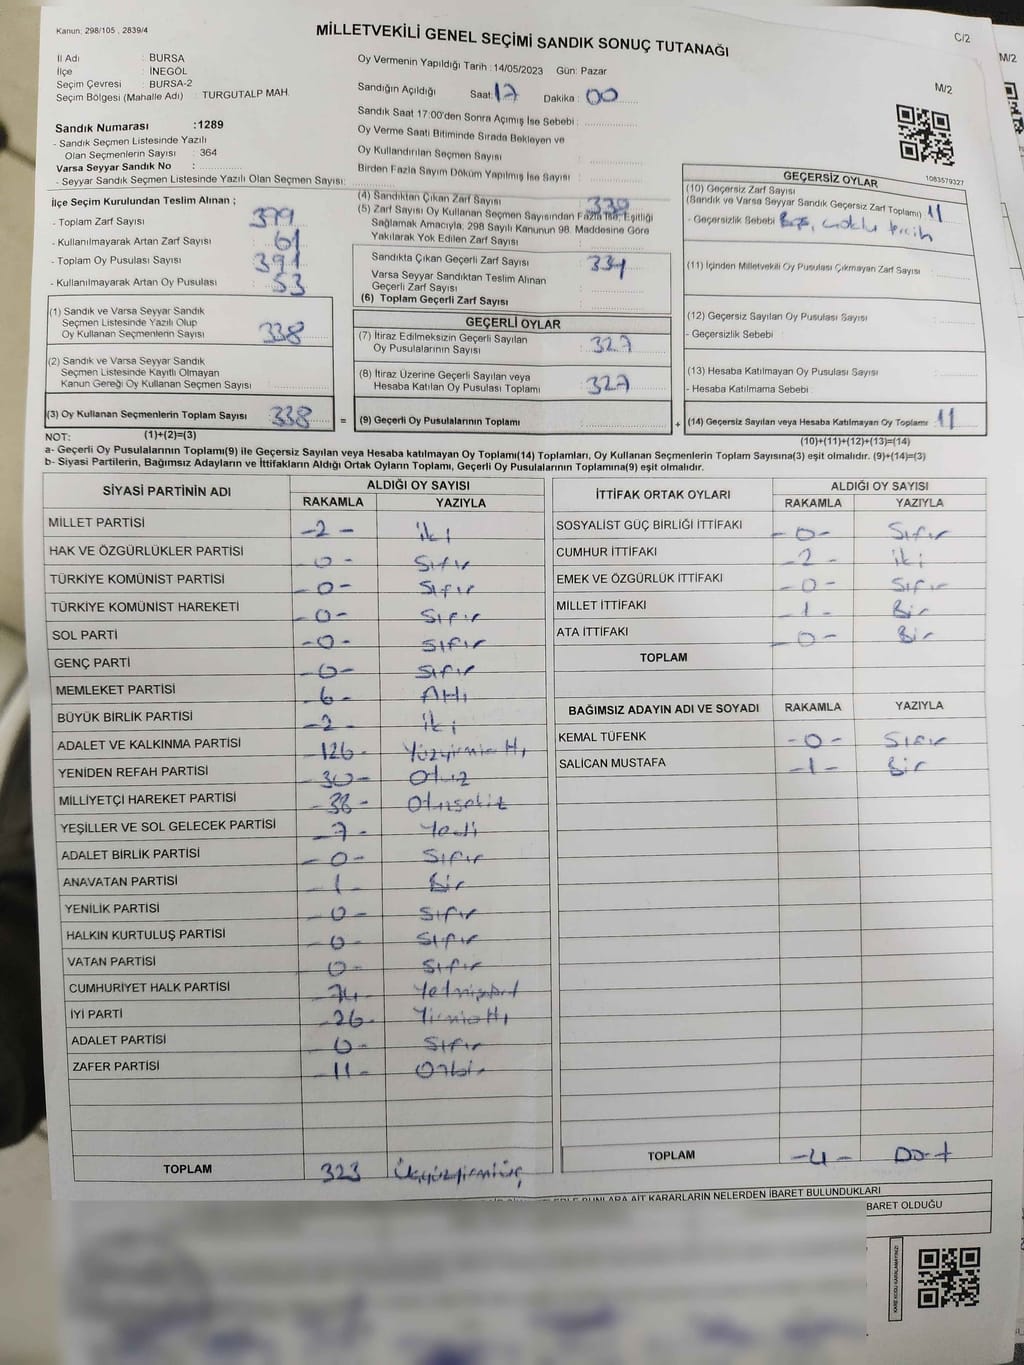 Kanun: 298/105 , 2839/4
MİLLETVEKİLİ GENEL SEÇİMİ SANDIK SONUÇ TUTANAĞI
C/2
M/2
İl Adı : BURSA
İlçe : İNEGÖL
Seçim Çevresi : BURSA-2
Seçim Bölgesi (Mahalle Adı) : TURGUTALP MAH.
Oy Vermenin Yapıldığı Tarih : 14/05/2023 Gün: Pazar
Sandığın Açıldığı Saat: 17 Dakika : 00
Sandık Saat 17:00'den Sonra Açımış İse Sebebi :
Oy Verme Saati Bitiminde Sırada Bekleyen ve
Oy Kullandırılan Seçmen Sayısı :
Birden Fazla Sayım Döküm Yapılmış İse Sayısı :
M/2
1083579327
Sandık Numarası : 1289
- Sandık Seçmen Listesinde Yazılı
Olan Seçmenlerin Sayısı : 364
Varsa Seyyar Sandık No :
- Seyyar Sandık Seçmen Listesinde Yazılı Olan Seçmen Sayısı:
İlçe Seçim Kurulundan Teslim Alınan ;
- Toplam Zarf Sayısı : 399
- Kullanılmayarak Artan Zarf Sayısı : 61
- Toplam Oy Pusulası Sayısı : 391
- Kullanılmayarak Artan Oy Pusulası : 53
(1) Sandık ve Varsa Seyyar Sandık
Seçmen Listesinde Yazılı Olup
Oy Kullanan Seçmenlerin Sayısı : 338
(2) Sandık ve Varsa Seyyar Sandık
Seçmen Listesinde Kayıtlı Olmayan
Kanun Gereği Oy Kullanan Seçmen Sayısı :
(3) Oy Kullanan Seçmenlerin Toplam Sayısı 338
(1)+(2)=(3)
(4) Sandıktan Çıkan Zarf Sayısı : 338
(5) Zarf Sayısı Oy Kullanan Seçmen Sayısından Fazla İse, Eşitliği
Sağlamak Amacıyla, 298 Sayılı Kanunun 98. Maddesine Göre
Yakılarak Yok Edilen Zarf Sayısı :
Sandıkta Çıkan Geçerli Zarf Sayısı :
Varsa Seyyar Sandıktan Teslim Alınan
Geçerli Zarf Sayısı :
(6) Toplam Geçerli Zarf Sayısı :
GEÇERLİ OYLAR
(7) İtiraz Edilmeksizin Geçerli Sayılan
Oy Pusulalarının Sayısı : 327
(8) İtiraz Üzerine Geçerli Sayılan veya
Hesaba Katılan Oy Pusulası Toplamı : 327
= (9) Geçerli Oy Pusulalarının Toplamı :
GEÇERSİZ OYLAR
(10) Geçersiz Zarf Sayısı
(Sandık ve Varsa Seyyar Sandık Geçersiz Zarf Toplamı) 11
- Geçersizlik Sebebi : Boş, çoklu tercih
(11) İçinden Milletvekili Oy Pusulası Çıkmayan Zarf Sayısı :
(12) Geçersiz Sayılan Oy Pusulası Sayısı :
- Geçersizlik Sebebi :
(13) Hesaba Katılmayan Oy Pusulası Sayısı :
- Hesaba Katılmama Sebebi :
+ (14) Geçersiz Sayılan veya Hesaba Katılmayan Oy Toplamı : 11
(10)+(11)+(12)+(13)=(14)
NOT:
a- Geçerli Oy Pusulalarının Toplamı(9) ile Geçersiz sayılan veya Hesaba katılmayan Oy Toplamı(14) Toplamları, Oy Kullanan Seçmenlerin Toplam Sayısına(3) eşit olmalıdır. (9)+(14)=(3)
b- Siyasi Partilerin, Bağımsız Adayların ve İttifakların Aldığı Ortak Oyların Toplamı, Geçerli Oy Pusulalarının Toplamına(9) eşit olmalıdır.
SİYASİ PARTİNİN ADI ALDIĞI OY SAYISI
RAKAMLA YAZIYLA
MİLLET PARTİSİ -2- iki
HAK VE ÖZGÜRLÜKLER PARTİSİ -0- Sıfır
TÜRKİYE KOMÜNİST PARTİSİ -0- Sıfır
TÜRKİYE KOMÜNİST HAREKETİ -0- Sıfır
SOL PARTİ -0- Sıfır
GENÇ PARTİ -0- Sıfır
MEMLEKET PARTİSİ -6- Altı
BÜYÜK BİRLİK PARTİSİ -2- iki
ADALET VE KALKINMA PARTİSİ -126- Yüzyirmialtı
YENİDEN REFAH PARTİSİ -30- Otuz
MİLLİYETÇİ HAREKET PARTİSİ -38- Otuzsekiz
YEŞİLLER VE SOL GELECEK PARTİSİ -7- Yedi
ADALET BİRLİK PARTİSİ -0- Sıfır
ANAVATAN PARTİSİ -1- Bir
YENİLİK PARTİSİ -0- Sıfır
HALKIN KURTULUŞ PARTİSİ -0- Sıfır
VATAN PARTİSİ -0- Sıfır
CUMHURİYET HALK PARTİSİ -74- Yetmişdört
İYİ PARTİ -26- Yirmialtı
ADALET PARTİSİ -0- Sıfır
ZAFER PARTİSİ -11- Onbir
TOPLAM 323 Üçyüzyirmiüç
İTTİFAK ORTAK OYLARI ALDIĞI OY SAYISI
RAKAMLA YAZIYLA
SOSYALİST GÜÇ BİRLİĞİ İTTİFAKI -0- Sıfır
CUMHUR İTTİFAKI -2- iki
EMEK VE ÖZGÜRLÜK İTTİFAKI -0- Sıfır
MİLLET İTTİFAKI -1- Bir
ATA İTTİFAKI -0- Bir
TOPLAM
BAĞIMSIZ ADAYIN ADI VE SOYADI RAKAMLA YAZIYLA
KEMAL TÜFENK -0- Sıfır
SALİCAN MUSTAFA -1- Bir
TOPLAM -4- Dört
BUNLARA AİT KARARLARIN NELERDEN İBARET BULUNDUKLARI
BARET OLDUĞU